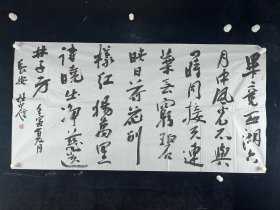 畢竟西湖六
月中風光不與
四時同接天連
葉无窮碧
映日荷花别
樣紅楊萬里
詩曉出净慈送
林子方
夏月
長安